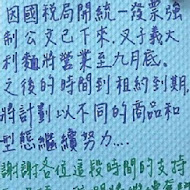 因國稅局開統一發票強
制公文已下來,叉子義大
利麵將營業至九月底。
之後的時間到租約到期,
將計劃以不同的商品和
型態繼續努力....
謝謝各位這段時間的支持